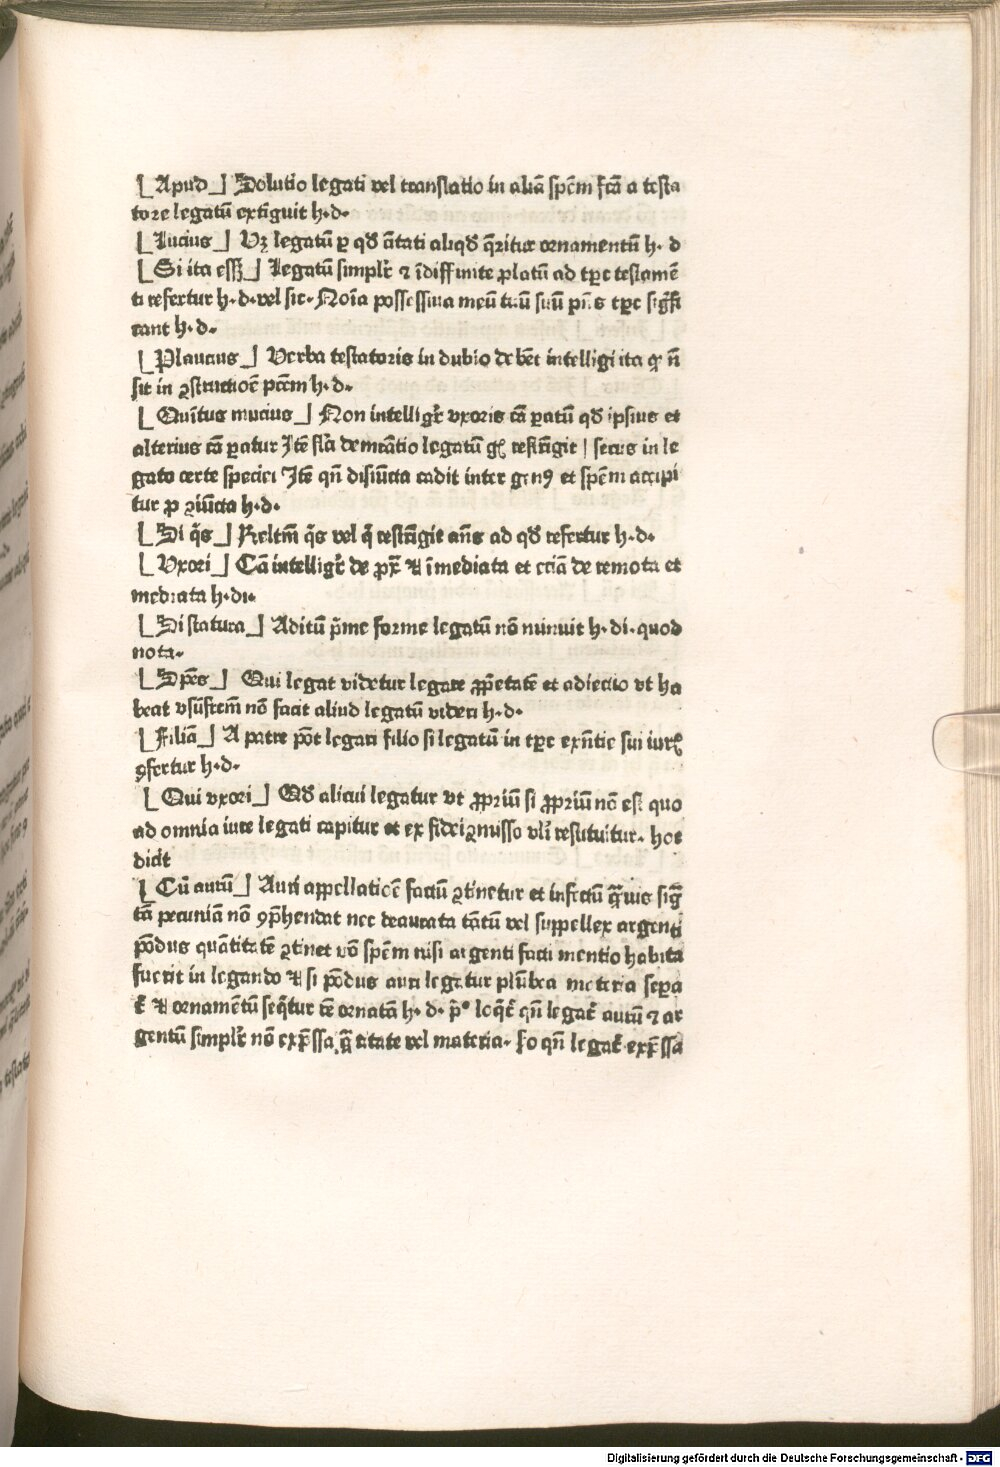 [ Apud ] Solutio legati vel translatio in aliā spēm fcā a testa
tore legatū extīguit h·d·
[ Lucius ] Vʒ legatū ꝑ qđ āītati aliqđ q̄ritur ornamentū h· d
[ Si ita eēt ] Legatū simplr̄ ⁊ īdiffinite ꝓlatū ad tꝑe testamē
ti refertur h·d·vel sic· Noīa possessiua meū tuū suū pn̄s tꝑe sigfi
cant h·d·
[ Plaucius ] Verba testatoris in dubio debēt intelligi ita ꝙ nō
sit in ꝯstructiōe pccm h·d·
[ Quītus mucius ] Non intelligr̄ vxoris cā ꝑatū qđ ipsius et
alterius cā ꝑatur Itē fla demrātio legatū restrīgit | secus in le
gato certe speciei Itē qn̄ disiūcta cadit inter genꝰ et spēm accipi
tur ꝓ ꝯiūcta h·d·
[ Si q̄s ] Reltm̄ q̄s vel q̄ restrīgit an̄s ad qđ refertur h·d·
[ Vxori ] Cā intelligr̄ de ꝓx̄ ⁊ īmediata et eciā de remota et
mediata h·di·
[ Si statura ] Aditū p̄me forme legatū nō minuit h·di·quod
nota·
[ Spēs ] Qui legat videtur legare ꝓp̄etatē et adiectio vt ha
beat vsūfrctm̄ nō facit aliud legatū videri h·d·
[ Filiā ] A patre pōt legari filio si legatū in tꝑe exn̄tie sui iurꝭ
ꝯfertur h·d·
[ Qui vxori ] Qđ alicui legatur vt ꝓpriū si ꝓpriū nō est quo
ad omnia iure legati capitur et ex fideiꝯmisso vlī restituitur· hoc
dicit
[ Cū aurū ] Auri appellatiōe factū ꝯtinetur et infectū q̄uis sig
tā pecuniā nō ꝯp̄hendat nec deaurata tātū vel suppellex argenti
pōdus quātitatē ꝯtinet vō spēm nisi argenti facti mentio habita
fuerit in legando ⁊ si pōdus auri legatur plūbea materia sepa
t̄ ⁊ ornamētū seq̄tur tē ornatā h· d· p̄º loq̄t̄ qn̄ legat̄ aurū ⁊ ar
gentū simplr̄ nō exp̄ssa q̄ titate vel materia· ſo qn̄ legat̄ exp̄ssa
Digitalisierung gefördert durch die Deutsche Forschungsgemeinschaft · DFG